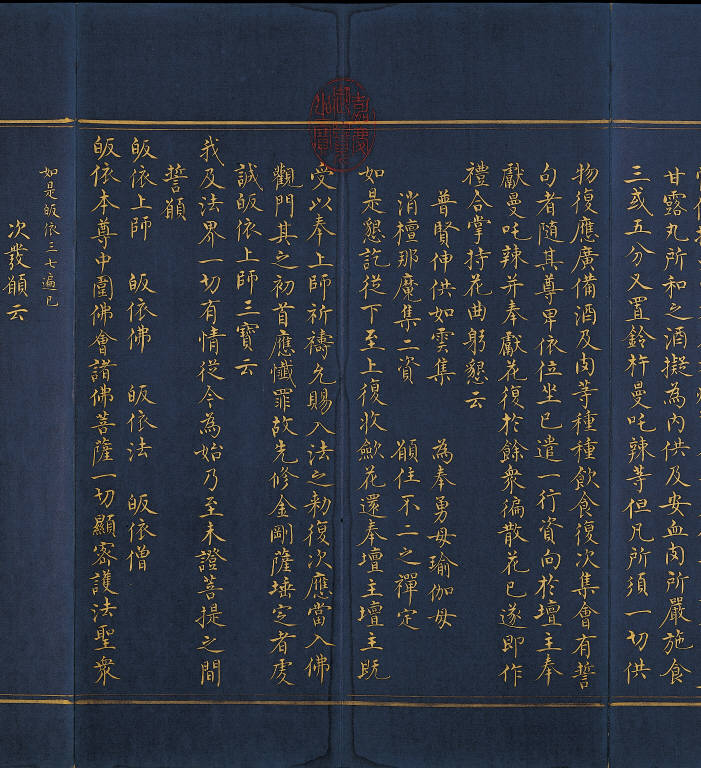 甘露丸所和之酒擬為內供及安血肉所嚴施食
三或五分又置鈴杵曼吒辣等但凡所須一切供
物復應廣備酒及肉等種種飲食復次集會有誓
句者隨其尊卑依位坐已遣一行資向於壇主奉
獻曼吒辣并奉獻花復於餘衆徧散花已遂即作
禮合掌持花曲躬懇云
普賢伸供如雲集 為奉勇母瑜伽母
消檀那魔集二資 願住不二之禪定
如是懇訖從下至上復收歛花還奉壇主壇主既
受以奉上師祈禱允賜入法之勅復次應當入佛
觀門其之初首應懺罪故先修金剛薩埵定者虔
誠皈依上師三寶云
我及法界一切有情從今為始乃至未證菩提之間
誓願
皈依上師 皈依佛 皈依法 皈依僧
皈依本尊中圍佛會諸佛菩薩一切顯密護法聖衆
如是皈依三七遍已
次發願云